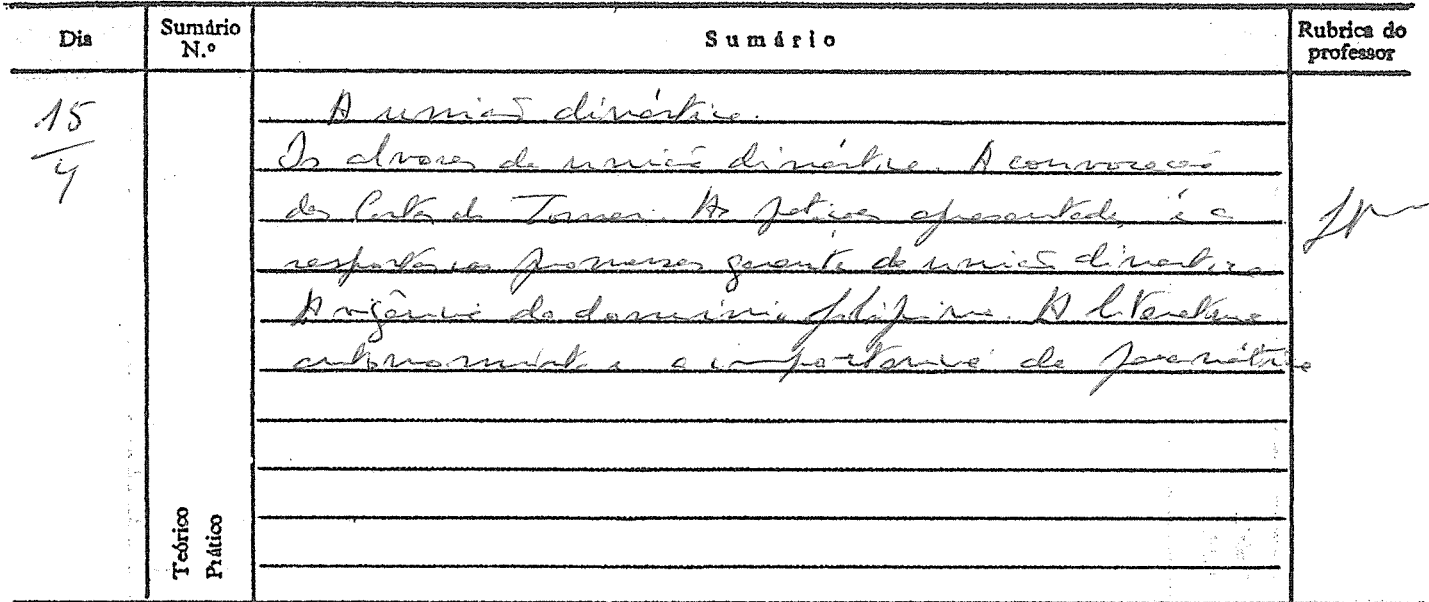 Dia
Sumário N.º
Sumário
Rubrica do professor
15/4
A união dinástica.
Os alvores da união dinástica. A convocação
das Cortes de Tomar. As petições apresentadas e a
resposta: as promessas garante da união dinástica
A vigência do domínio filipino. A literatura
autonomista e a importância da
Teórico
Prático